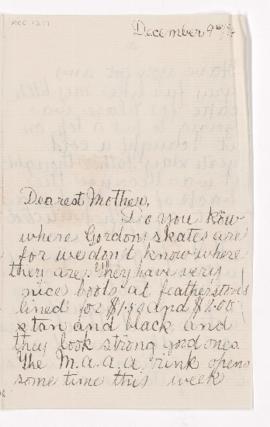 December 9th
Dearest Mother,
Do You know
where Gordons skates are
for we don't know where
they are. They have very
nice boots at featherstones
lined for $1.50 and $2.00
tan and black and
they look strong good ones.
The M.a.a.a. rink opens
some time this week